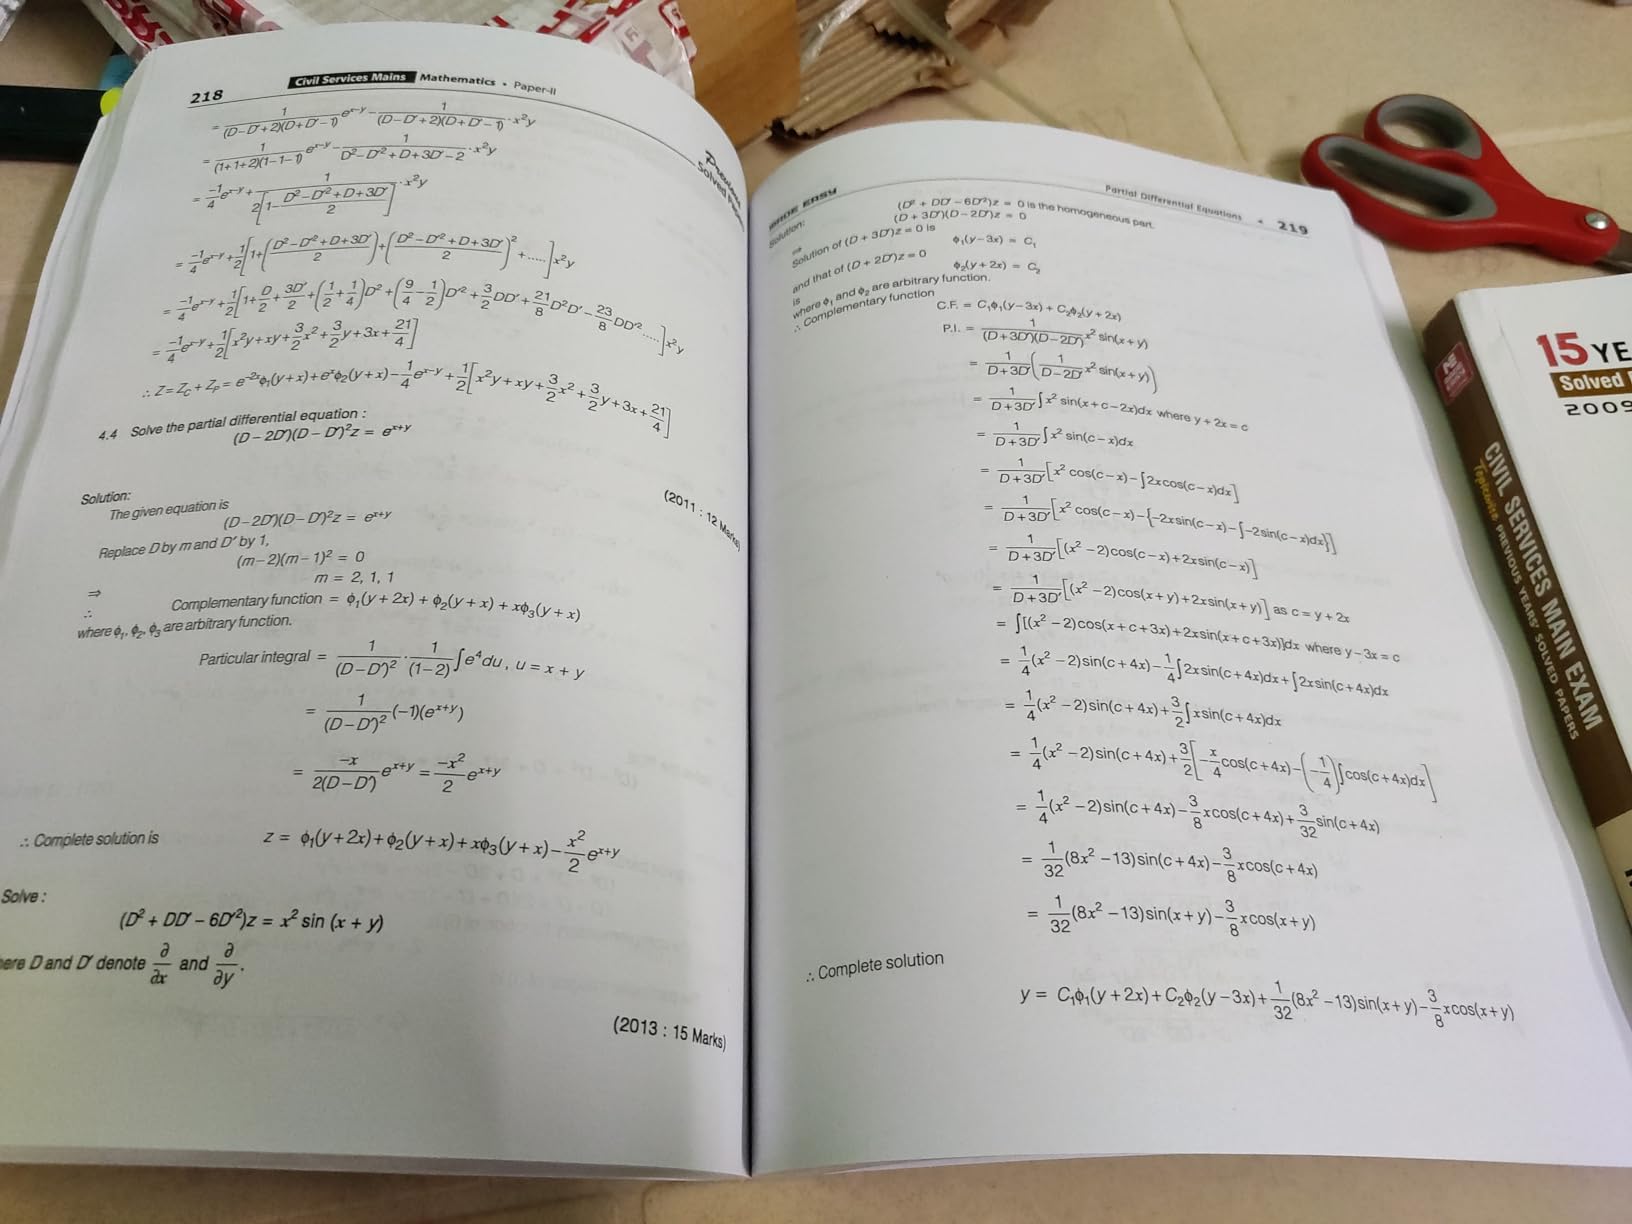 218
Civil Services Mains Mathematics • Paper-II
= 1/((D–D′+2)(D+D′–1)) e^(x–y) – 1/((D–D′+2)(D+D′–1)) · x²y
= 1/((1+1+2)(1–1–1)) e^(x–y) – 1/(D²–D′²+D+3D′–2) · x²y
= –1/4 e^(x–y) + 1/(2[1 – (D²–D′²+D+3D′)/2]) · x²y
= –1/4 e^(x–y) + 1/2 [1+((D²–D′²+D+3D′)/2)+((D²–D′²+D+3D′)/2)²+.....] x²y
= –1/4 e^(x–y) + 1/2 [1+D/2+3D′/2+(1/2+1/4)D²+(9/4–1/2)D′²+3/2 DD′+21/8 D²D′–23/8 DD′².....] x²y
= –1/4 e^(x–y) + 1/2 [x²y+xy+3/2 x²+3/2 y+3x+21/4]
∴ Z = Z_C + Z_P = e^(–2x)ϕ₁(y+x)+e^xϕ₂(y+x)–1/4 e^(x–y)+1/2 [x²y+xy+3/2 x²+3/2 y+3x+21/4]
4.4 Solve the partial differential equation :
(D – 2D′)(D – D′)²z = e^(x+y)
(2011 : 12 Marks)
Solution:
The given equation is
(D – 2D′)(D – D′)²z = e^(x+y)
Replace D by m and D′ by 1,
(m–2)(m–1)² = 0
⇒ m = 2, 1, 1
∴ Complementary function = ϕ₁(y + 2x) + ϕ₂(y + x) + xϕ₃(y + x)
where ϕ₁, ϕ₂, ϕ₃ are arbitrary function.
Particular integral = 1/(D–D′)² · 1/(1–2) ∫e⁴du, u = x + y
= 1/(D–D′)² (–1)(e^(x+y))
= –x/(2(D–D′)) e^(x+y) = –x²/2 e^(x+y)
∴ Complete solution is z = ϕ₁(y+2x)+ϕ₂(y+x)+xϕ₃(y+x)–x²/2 e^(x+y)
Solve :
(D² + DD′ – 6D′²)z = x² sin (x + y)
D and D′ denote ∂/∂x and ∂/∂y.
(2013 : 15 Marks)
MADE EASY
Partial Differential Equations • 219
Solution:
(D² + DD′ – 6D′²)z = 0 is the homogeneous part.
⇒ (D + 3D′)(D – 2D′)z = 0
Solution of (D + 3D′)z = 0 is
ϕ₁(y – 3x) = C₁
and that of (D + 2D′)z = 0
is ϕ₂(y + 2x) = C₂
where ϕ₁ and ϕ₂ are arbitrary function.
∴ Complementary function
C.F. = C₁ϕ₁(y – 3x) + C₂ϕ₂(y + 2x)
P.I. = 1/((D+3D′)(D–2D′)) x² sin(x + y)
= 1/(D+3D′) (1/(D–2D′) x² sin(x + y))
= 1/(D+3D′) ∫x² sin(x + c – 2x)dx where y + 2x = c
= 1/(D+3D′) ∫x² sin(c – x)dx
= 1/(D+3D′) [x² cos(c – x) – ∫2x cos(c – x)dx]
= 1/(D+3D′) [x² cos(c – x) – {–2x sin(c – x) – ∫–2sin(c – x)dx}]
= 1/(D+3D′) [(x² – 2)cos(c – x) + 2x sin(c – x)]
= 1/(D+3D′) [(x² – 2)cos(x + y) + 2x sin(x + y)] as c = y + 2x
= ∫[(x² – 2)cos(x + c + 3x) + 2x sin(x + c + 3x)]dx where y – 3x = c
= 1/4 (x² – 2)sin(c + 4x) – 1/4 ∫2x sin(c + 4x)dx + ∫2x sin(c + 4x)dx
= 1/4 (x² – 2)sin(c + 4x) + 3/2 ∫x sin(c + 4x)dx
= 1/4 (x² – 2)sin(c + 4x) + 3/2 [–x/4 cos(c + 4x) – (–1/4) ∫cos(c + 4x)dx]
= 1/4 (x² – 2)sin(c + 4x) – 3/8 x cos(c + 4x) + 3/32 sin(c + 4x)
= 1/32 (8x² – 13)sin(c + 4x) – 3/8 x cos(c + 4x)
= 1/32 (8x² – 13)sin(x + y) – 3/8 x cos(x + y)
∴ Complete solution
y = C₁ϕ₁(y + 2x) + C₂ϕ₂(y – 3x) + 1/32 (8x² – 13)sin(x + y) – 3/8 x cos(x + y)
15 YE
Solved
2009
CIVIL SERVICES MAIN EXAM
Topicwise PREVIOUS YEARS' SOLVED PAPERS